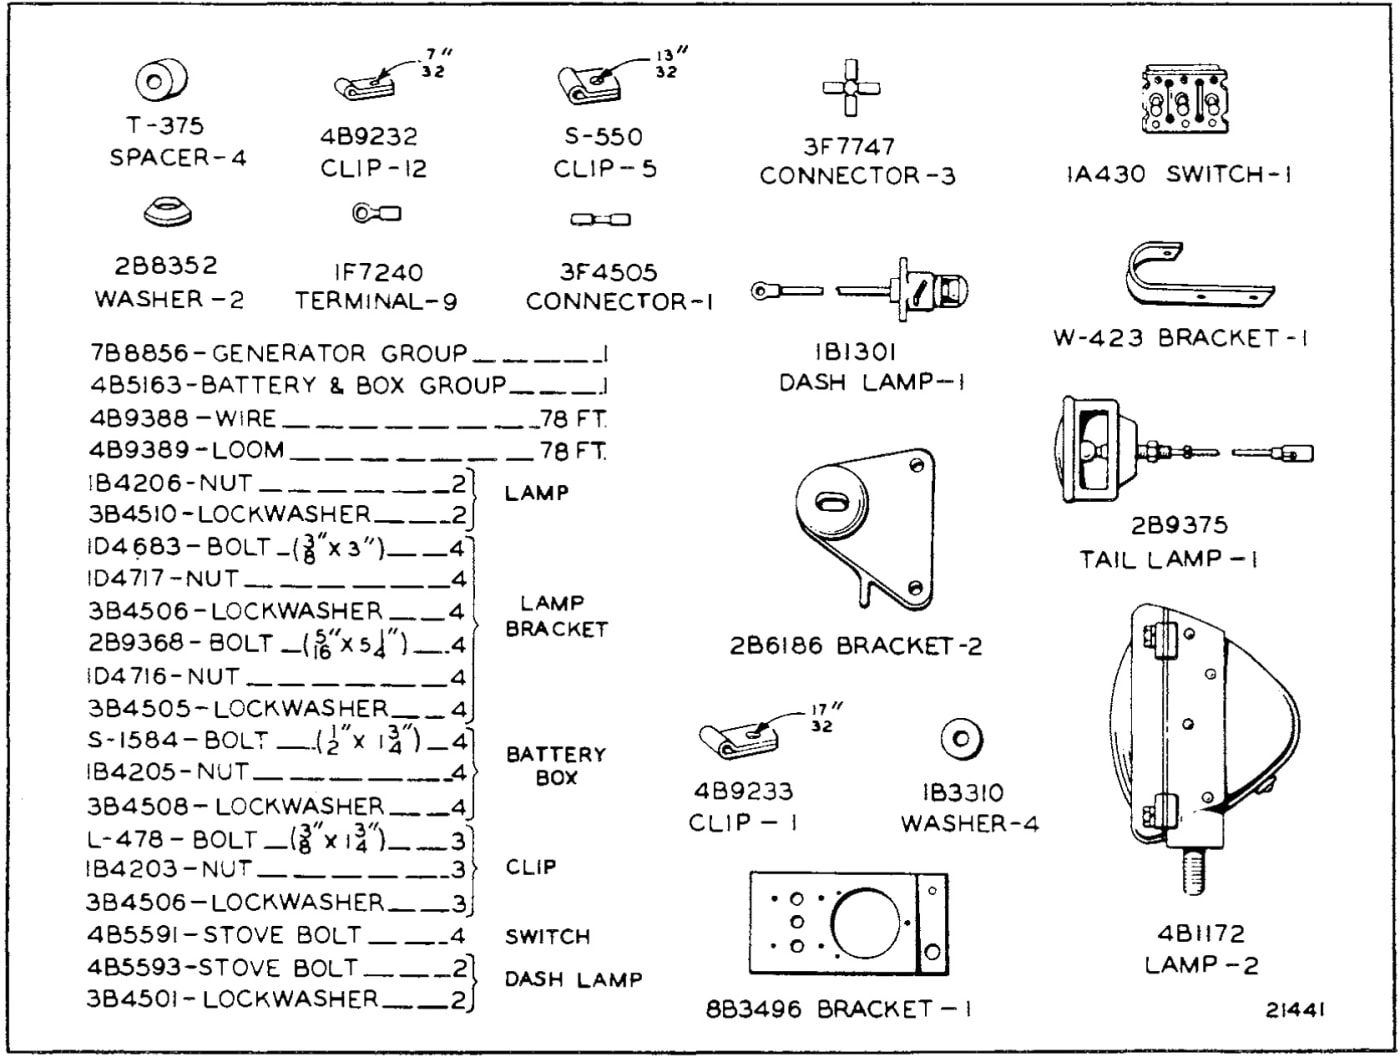 7"
32
13"
32
T-375
SPACER-4
4B9232
CLIP-12
S-550
CLIP-5
3F7747
CONNECTOR-3
1A430 SWITCH-1
2B8352
WASHER-2
1F7240
TERMINAL-9
3F4505
CONNECTOR-1
1B1301
DASH LAMP-1
W-423 BRACKET-1
7B8856-GENERATOR GROUP_____1
4B5163-BATTERY & BOX GROUP____1
4B9388-WIRE__________78 FT.
4B9389-LOOM_________78 FT.
1B4206-NUT_______2
3B4510-LOCKWASHER____2
LAMP
1D4683-BOLT_(3/8"X3")___4
1D4717-NUT_______4
3B4506-LOCKWASHER___4
2B9368-BOLT_(5/16"X5 1/4")__4
1D4716-NUT_______4
3B4505-LOCKWASHER___4
LAMP
BRACKET
S-1584-BOLT__(1/2"X 1 3/4")_4
1B4205-NUT_______4
3B4508-LOCKWASHER___4
BATTERY
BOX
L-478-BOLT_(3/8"X1 3/4")__3
1B4203-NUT_______3
3B4506-LOCKWASHER___3
CLIP
4B5591-STOVE BOLT____4
SWITCH
4B5593-STOVE BOLT____2
3B4501-LOCKWASHER____2
DASH LAMP
2B9375
TAIL LAMP-1
2B6186 BRACKET-2
17"
32
4B9233
CLIP-1
1B3310
WASHER-4
8B3496 BRACKET-1
4B1172
LAMP-2
21441